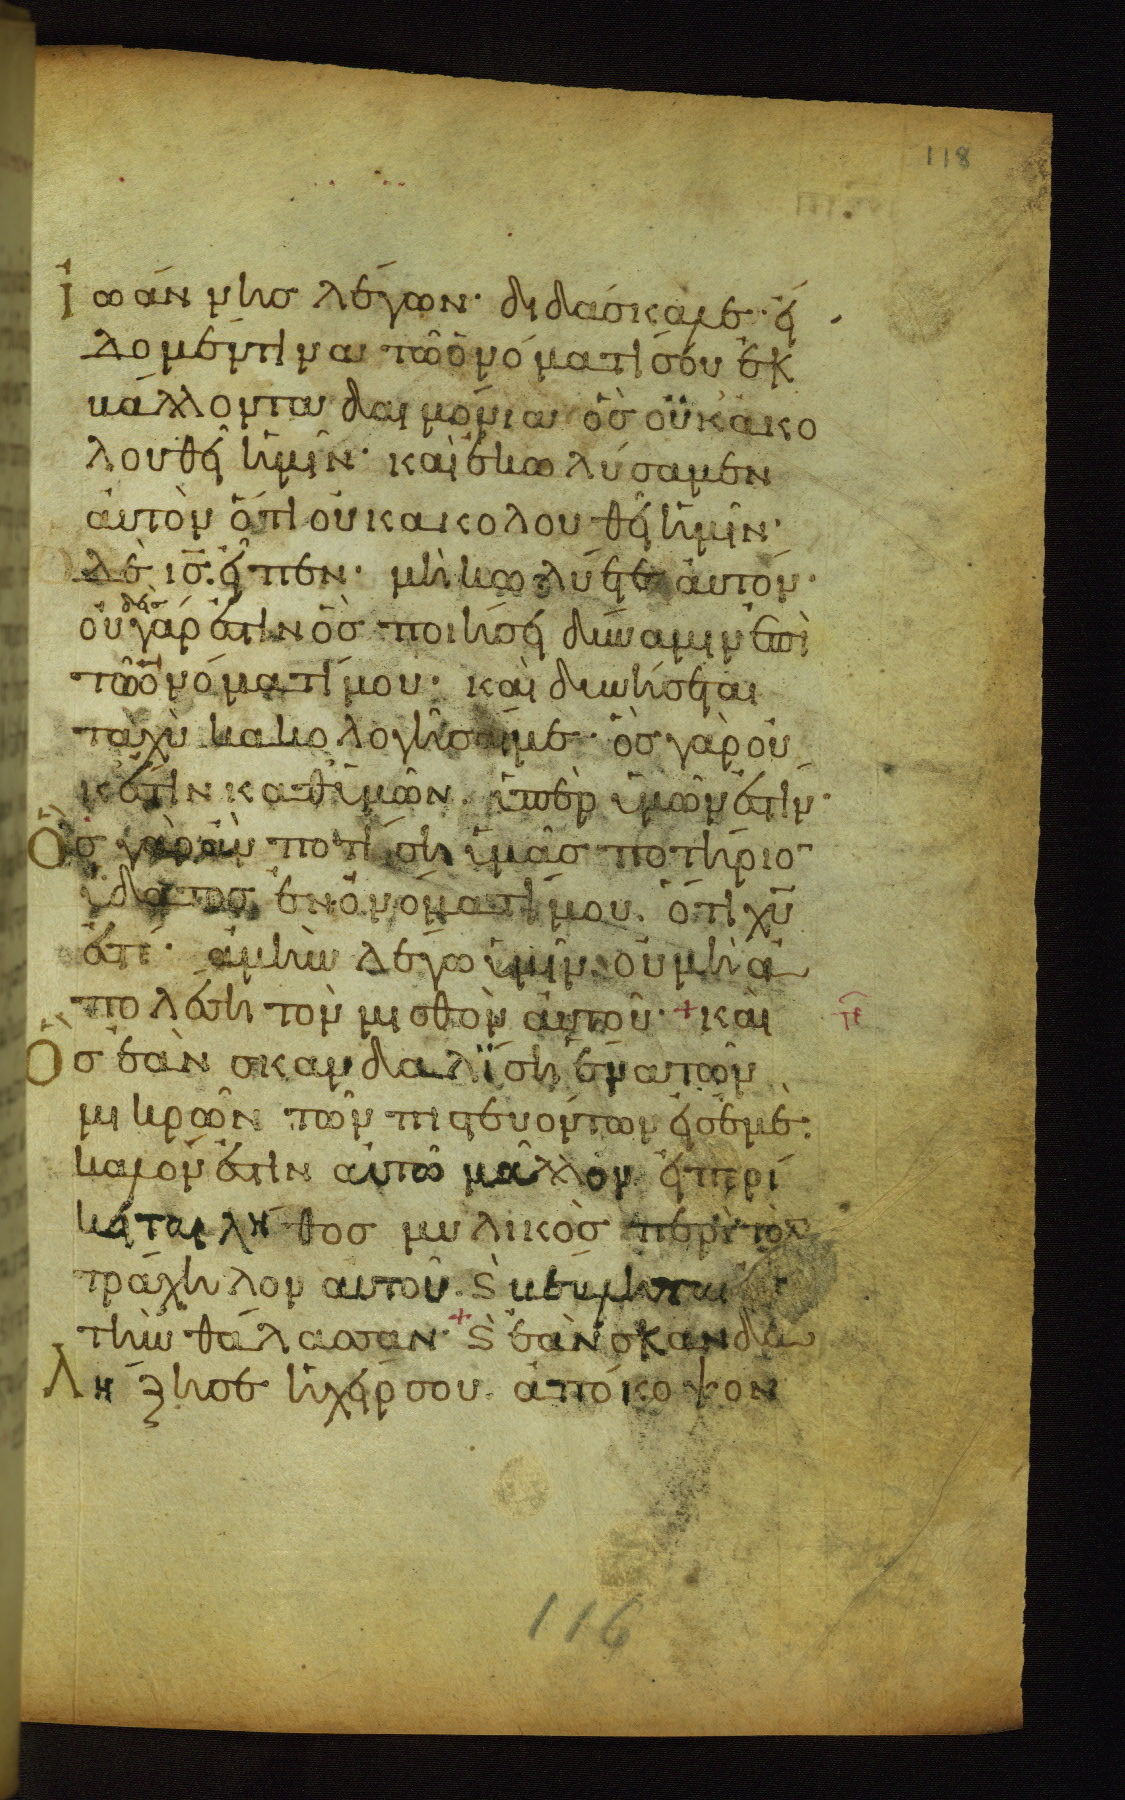 118
ἰωάννησ λέγων· διδάσκαλε· εἴ
δομέν τινα τῶ ὀνόματί σου ἐκ
βάλλοντα δαιμόνια ὃσ οὐκ ἀκο
λουθεῖ ἡμῖν· καὶ ἐκωλύσαμεν
αὐτὸν ὅτι οὐκ ακολουθεῖ ἡμῖν·
δὲ ισ̅ εἶπεν· μὴ κωλύετε αὐτόν·
οὐδεὶσ γάρ ἐστιν ὃσ ποιήσει δύναμιν ἐπὶ
τῶ ὀνόματί μου· καὶ δυνήσεται
ταχὺ κακολογῆσαί με· ὃσ γὰρ οὐ
κ ἔστιν καθ ἡμῶν. ὑπὲρ ἡμῶν ἐστιν·
Ὃσ γὰρ ἂν ποτίση ὑμᾶσ ποτήριο̅
ὕδατοσ ἐν ὀνόματί μου. ὅτι χυ̅
ἐστέ· ἀμὴν λέγω ὑμῖν. οὐ μὴ ἀ
πολέση τὸν μισθὸν ἀυτοῦ· + καὶ
Ὃσ ἐὰν σκανδαλίση ἕνα τῶν
μικρῶν τῶν πιστευόντων εἰσ ἐμὲ·
καλόν ἐστιν αὐτῶ μᾶλλον εἰ περί
κειται λήθοσ μυλικὸσ περὶ τὸν
τράχηλον αυτοῦ. ϛ̀ βέβληται
τὴν θάλασσαν· + ϛ̀ ἐὰν σκανδα
λήζησε ἡ χείρ σου. ἀπόκοψον
116